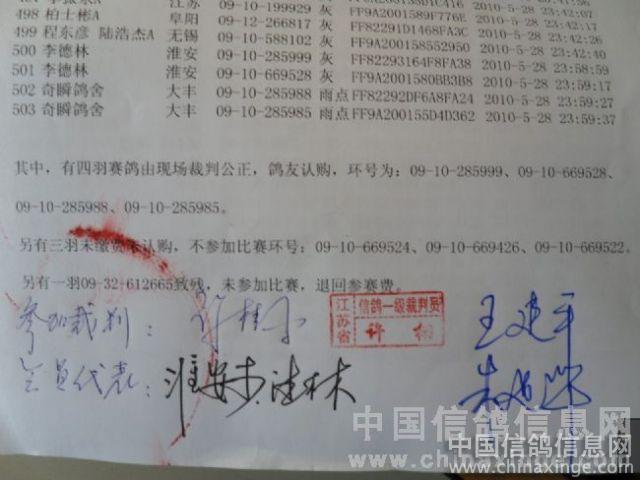 江苏 09-10-199929 灰
498 柏士彬A 阜阳 09-12-266817 灰 FF9A2001589F776E 2010-5-28 23:42:07
499 程东彦 陆浩杰A 无锡 09-10-588102 灰 FF82291D1468FA3C 2010-5-28 23:42:26
500 李德林 淮安 09-10-285999 灰 FF9A200158552950 2010-5-28 23:42:40
501 李德林 淮安 09-10-669528 灰 FF82293164F8FA38 2010-5-28 23:58:59
502 奇瞬鸽舍 大丰 09-10-285988 雨点 FF9A2001580BB3B8 2010-5-28 23:59:17
503 奇瞬鸽舍 大丰 09-10-285985 雨点 FF82292DF6A8FA24 2010-5-28 23:59:27
FF9A200155D4D362 2010-5-28 23:59:37
其中，有四羽赛鸽由现场裁判公正，鸽友认购，环号为：09-10-285999、09-10-669528、
09-10-285988、09-10-285985。
另有三羽未缴费未认购，不参加比赛环号：09-10-669524、09-10-669426、09-10-669522。
另有一羽09-32-612665致残，未参加比赛，退回参赛费。
参加裁判：
江苏省 信鸽一级裁判员
王建平
会员代表：淮安李德林
中国信鸽信息网
中国信鸽信息网
www.chinaxinge.com